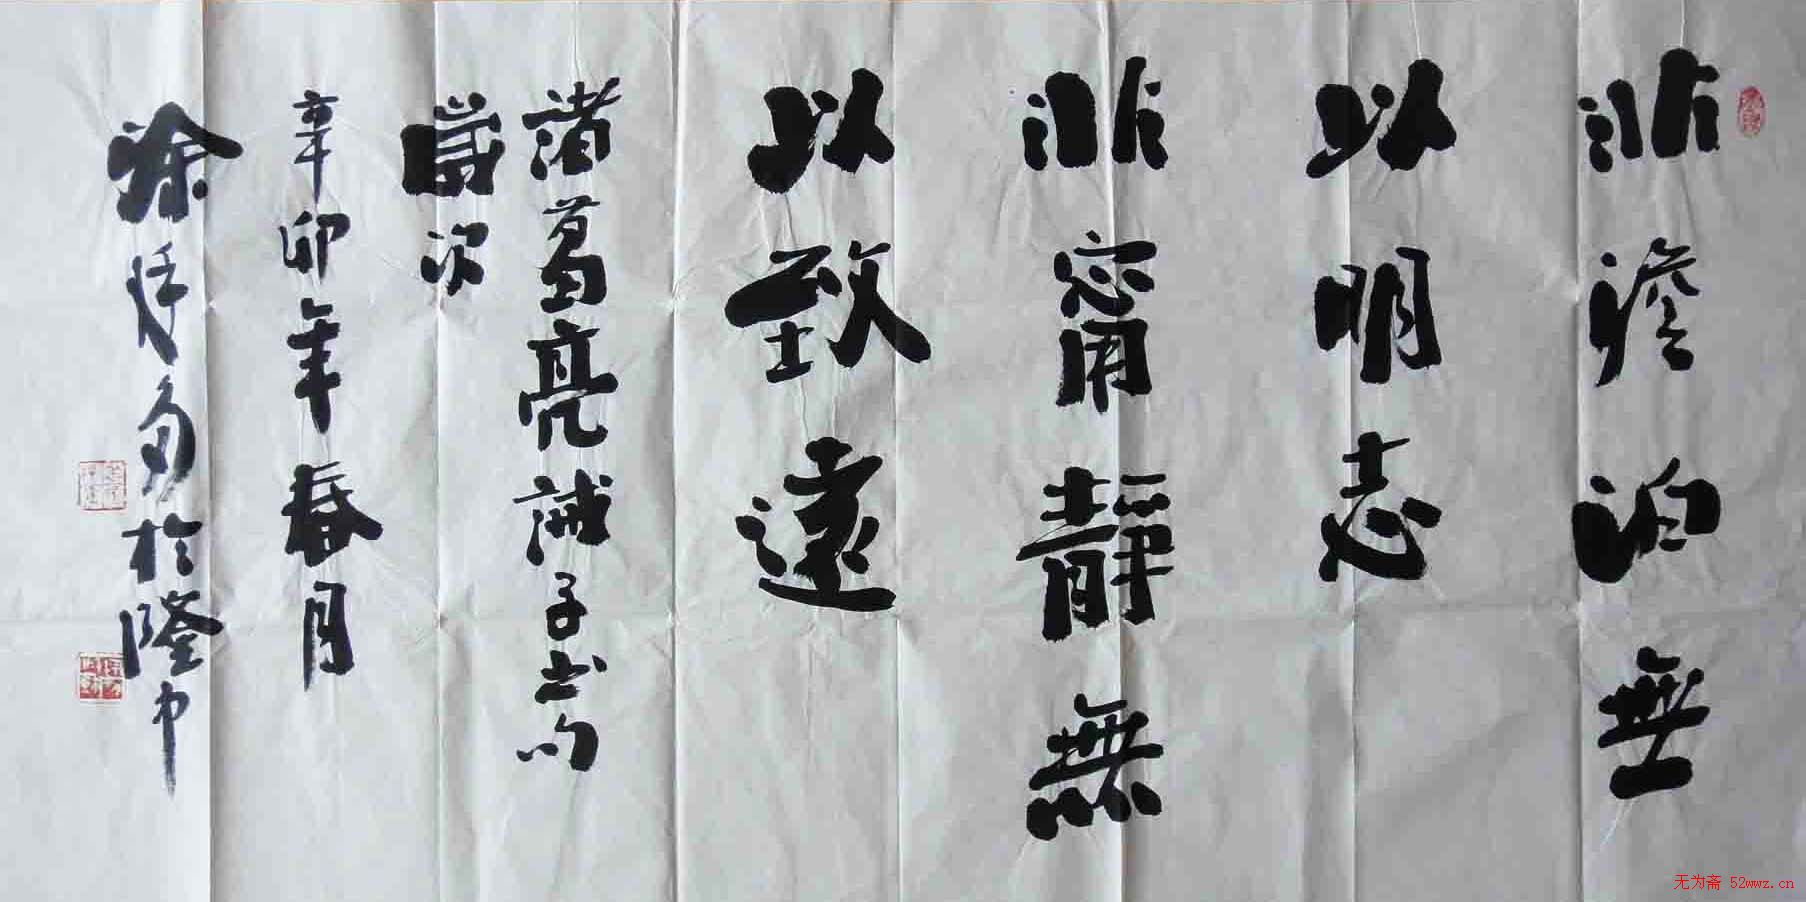 非澹泊無
以明志
非甯靜無
以致遠
諸葛亮誡子書句
歲次
辛卯年春月
徐
於隆中
无为斋 52wwz.cn